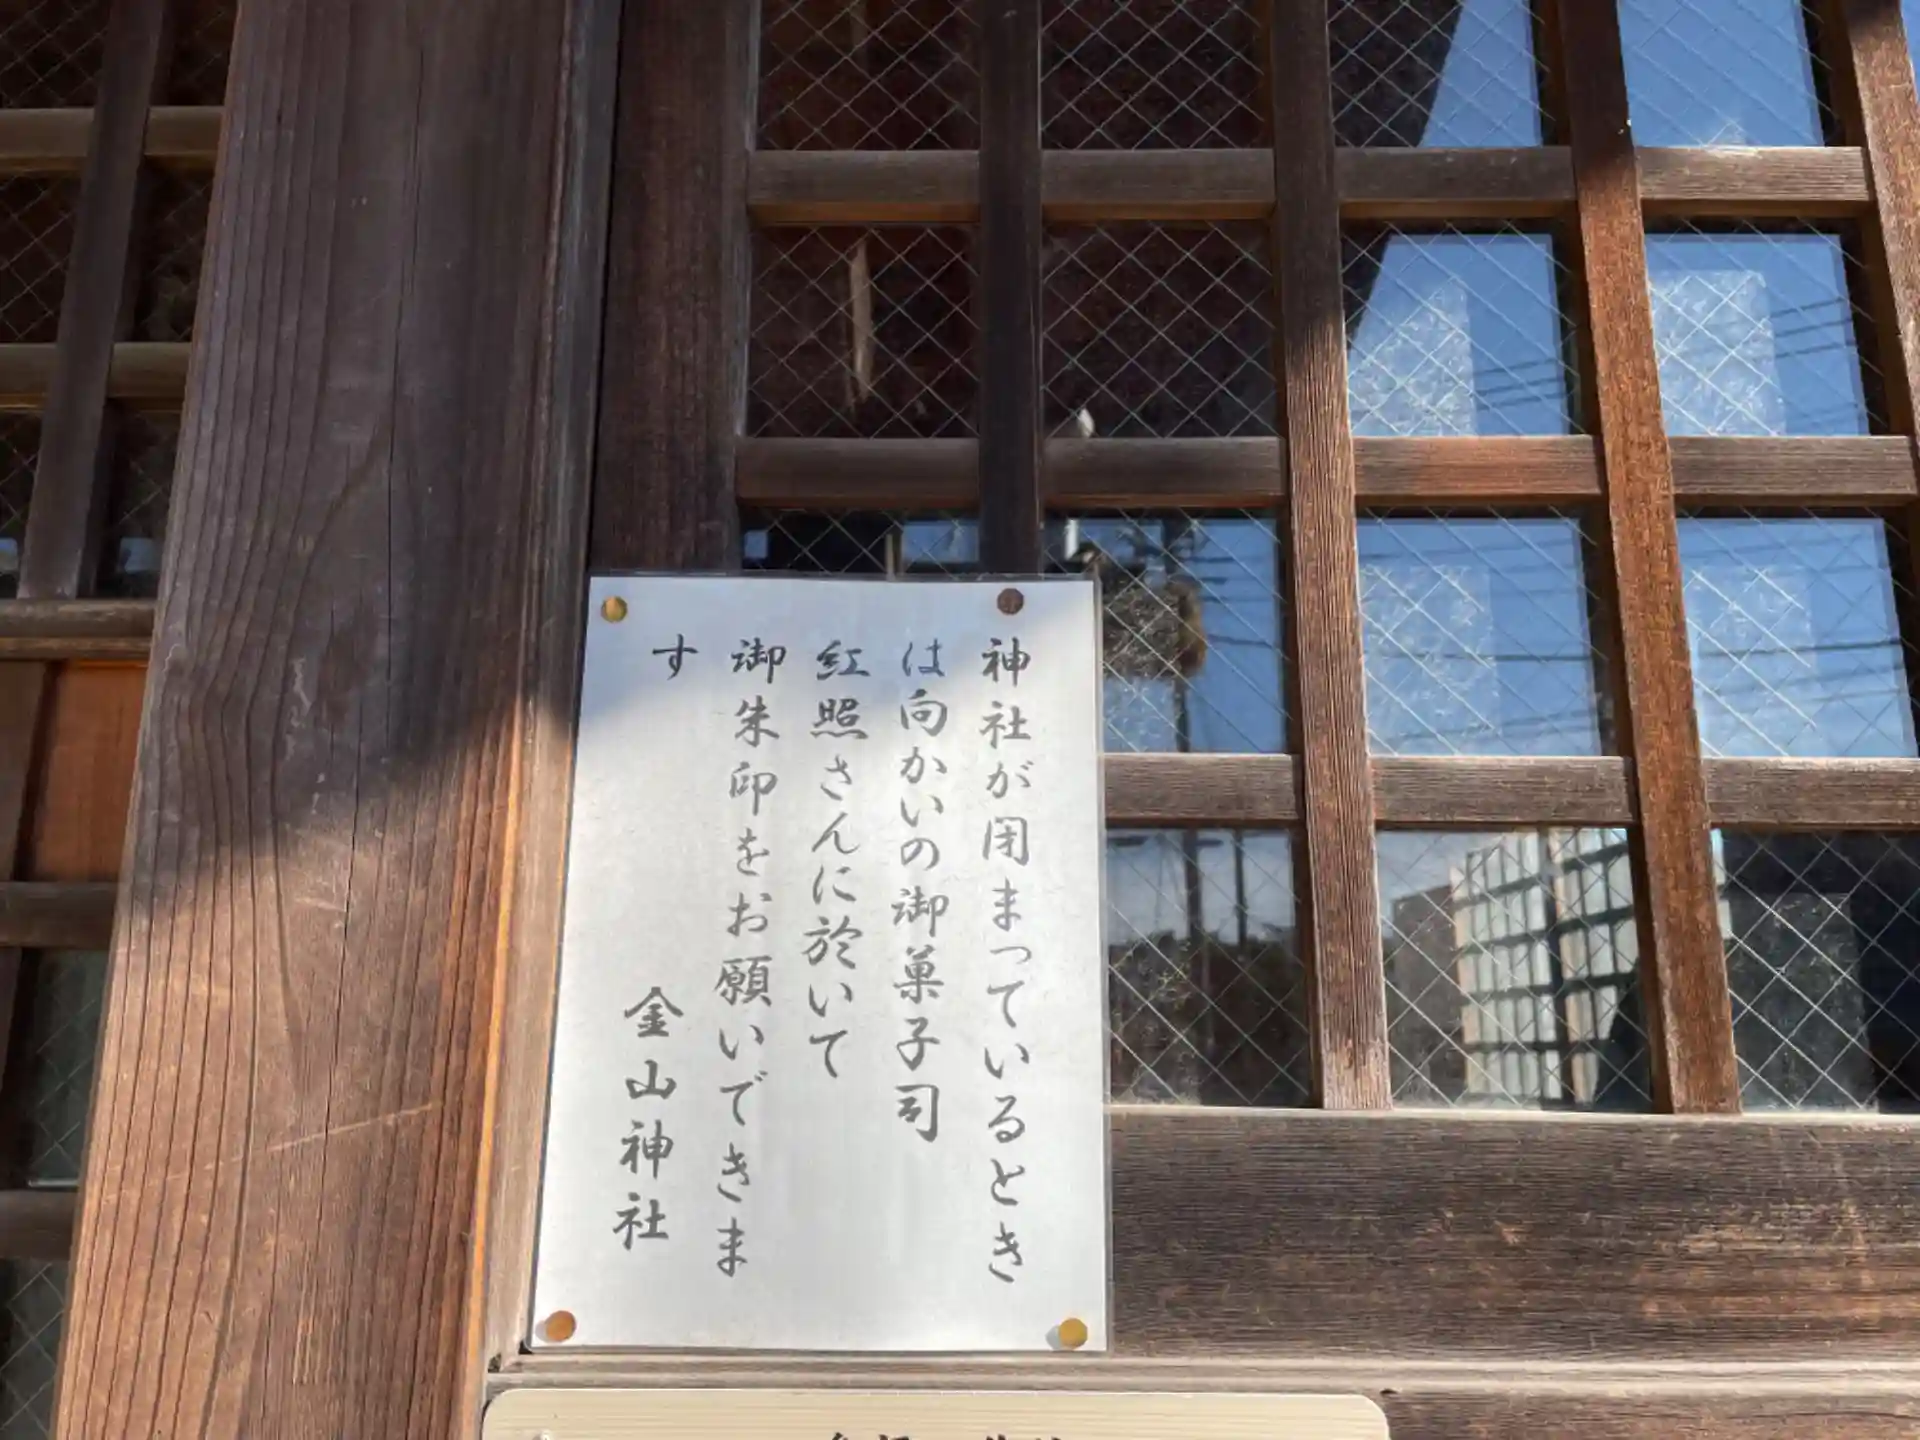 神社が閉まっているとき
は向かいの御菓子司
紅照さんに於いて
御朱印をお願いできま
す
金山神社